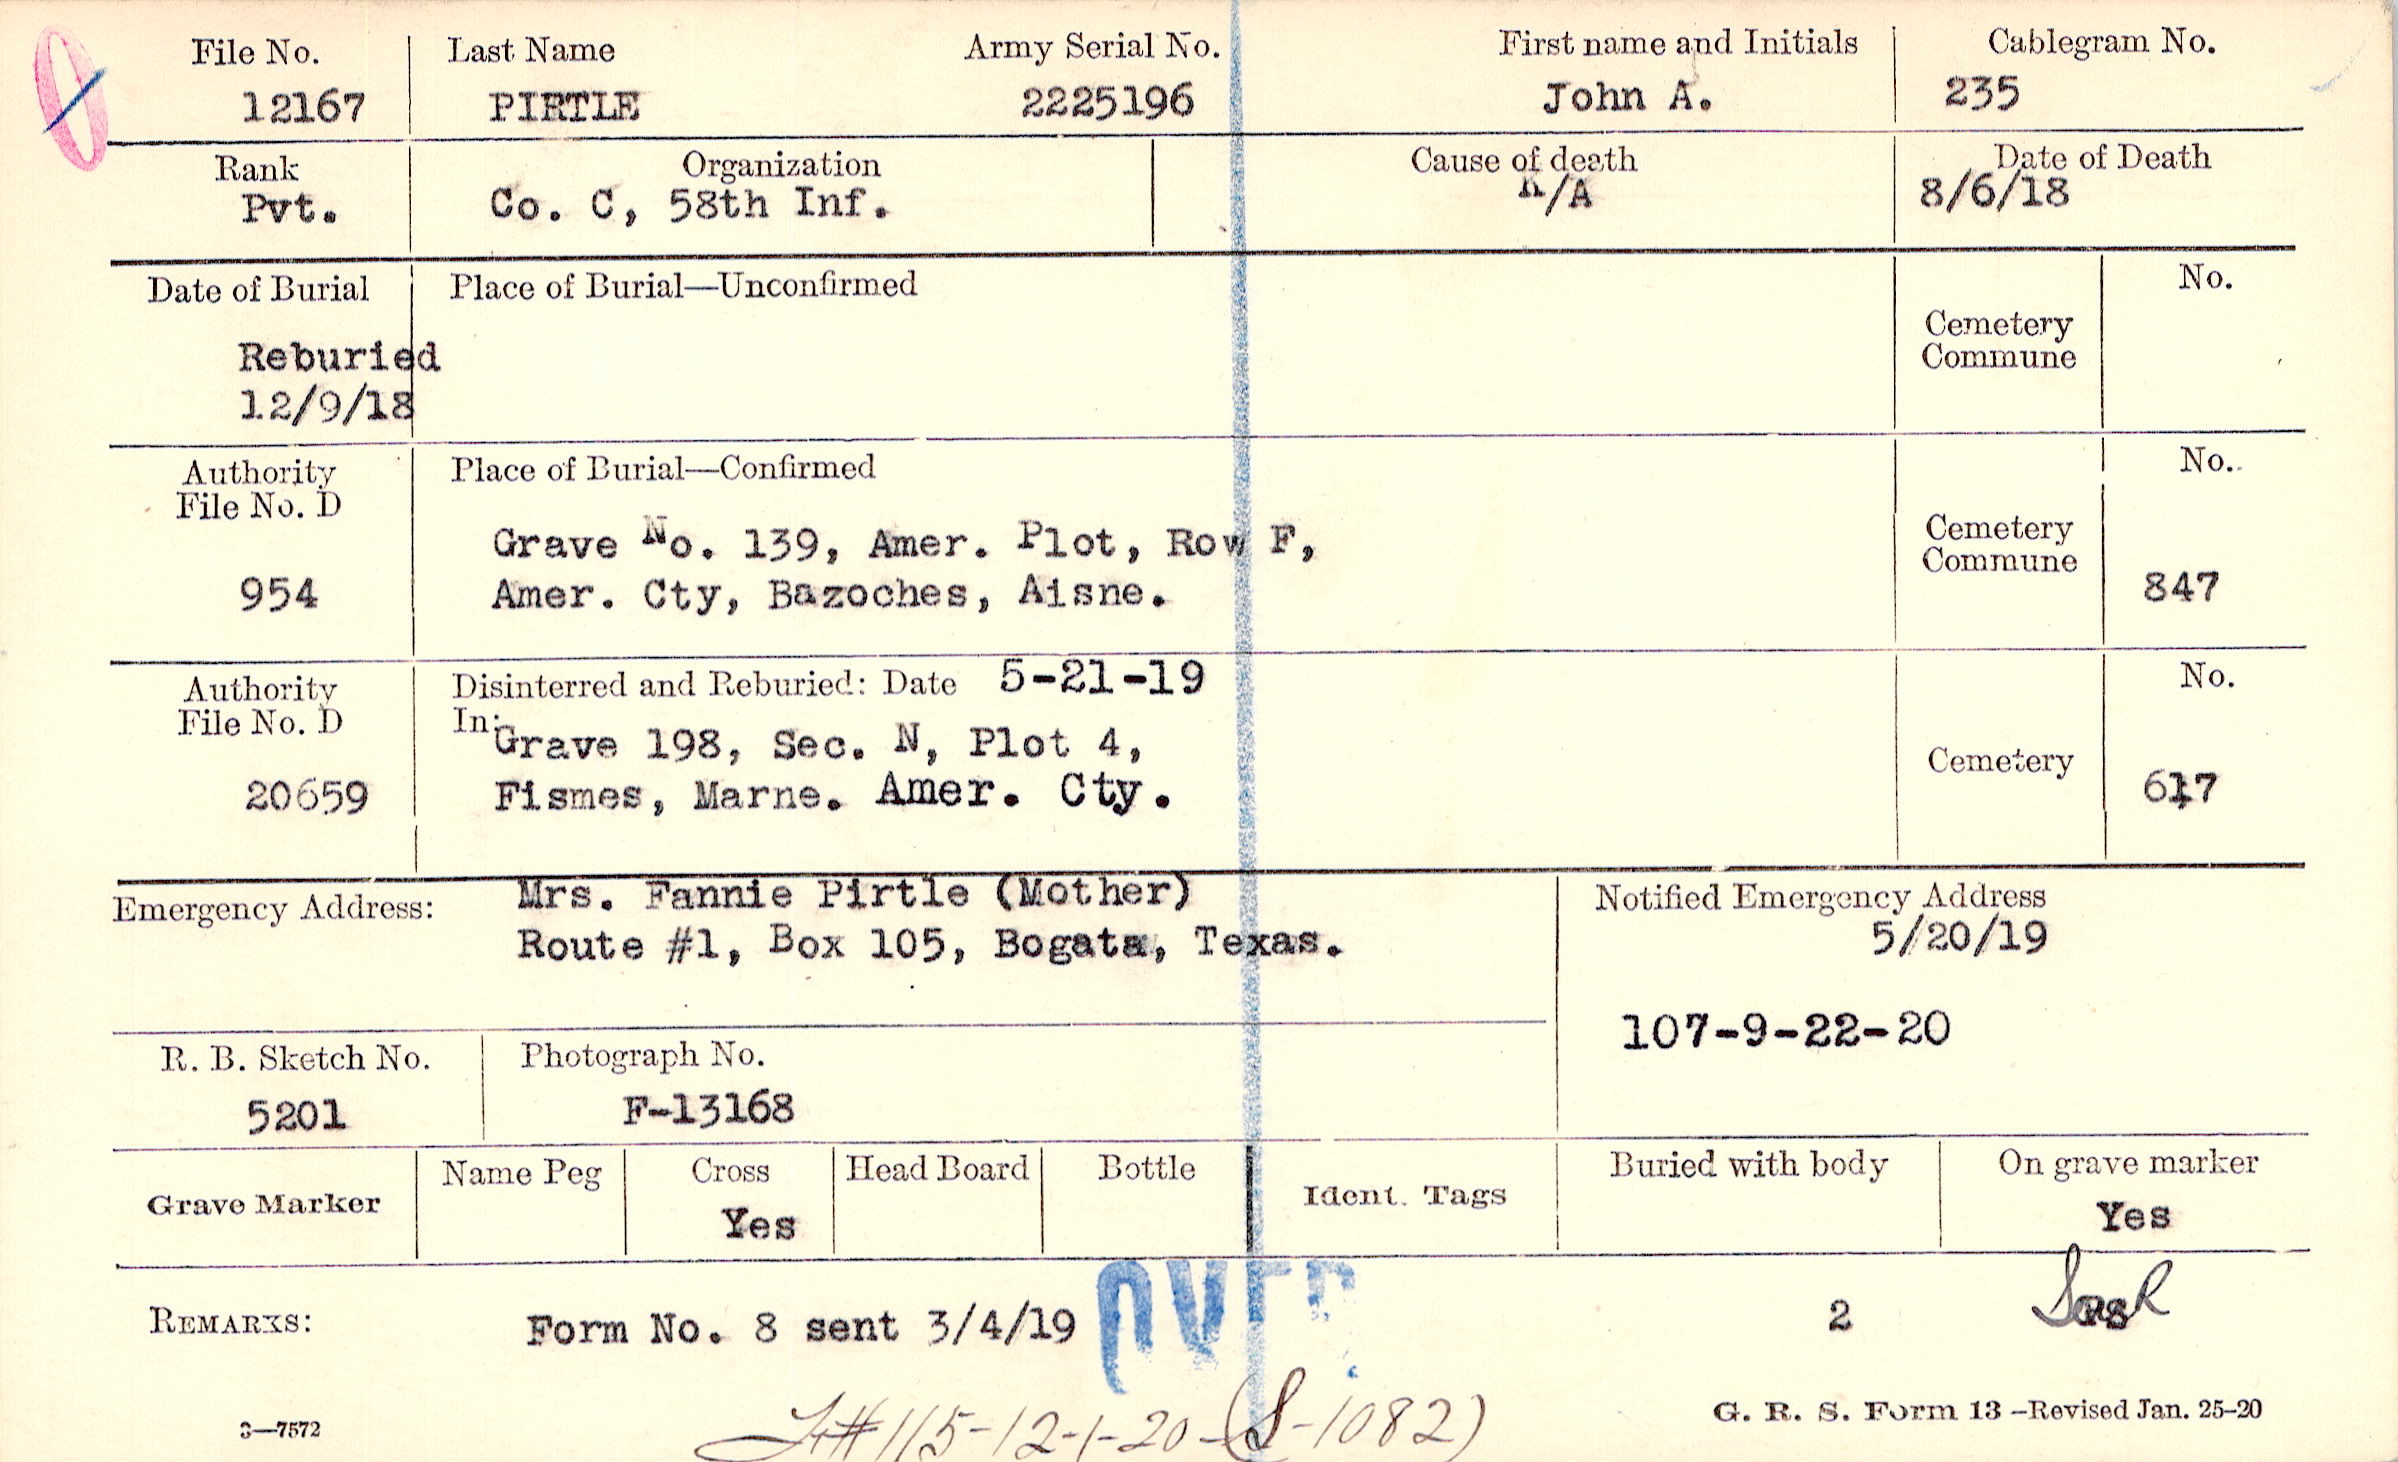 File No. Last Name Army Serial No. First name and Initials Cablegram No.
12167 PIRTLE 2225196 John A. 235
Rank Organization Cause of death Date of Death
Pvt. Co. C, 58th Inf. K/A 8/6/18
Date of Burial Place of Burial—Unconfirmed No.
Cemetery
Commune
Reburied
12/9/18
Authority Place of Burial—Confirmed No.
File No. D
Grave No. 139, Amer. Plot, Row F, Cemetery
Commune
954 Amer. Cty, Bazoches, Aisne. 847
Authority Disinterred and Reburied: Date 5-21-19 No.
File No. D In:
Grave 198, Sec. N, Plot 4, Cemetery
20659 Fismes, Marne. Amer. Cty. 617
Emergency Address: Mrs. Fannie Pirtle (Mother) Notified Emergency Address
Route #1, Box 105, Bogata, Texas. 5/20/19
107-9-22-20
R. B. Sketch No. Photograph No.
5201 F-13168
Grave Marker Name Peg Cross Head Board Bottle Ident. Tags Buried with body On grave marker
Yes Yes
REMARKS: Form No. 8 sent 3/4/19 OVER 2
#115-12-1-20-(S-1082)
3—7572 G. R. S. Form 13—Revised Jan. 25-20